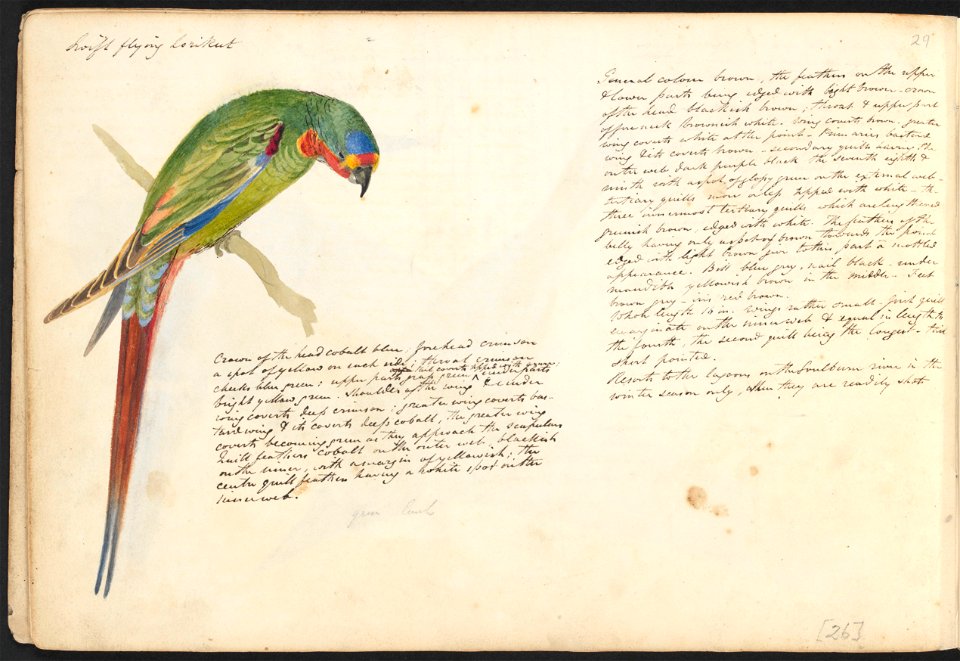 Swift flying Lorikeet
29
Crown of the head cobalt blue, forehead crimson
a spot of yellow on each side; throat crimson
cheeks blue green; upper parts grass green, under parts
upper tail coverts tipped with
bright yellow green. Shoulders of the wing & under
wing coverts deep crimson; greater wing coverts bas-
tard wing & its coverts deep cobalt, the greater wing
coverts becoming green as they approach the scapulars
Quill feathers cobalt on the outer web, blackish
on the inner, with a margin of yellowish; the
centre quill feathers having a white spot on the
inner web.
General colour brown, the feathers on the upper
& lower parts being edged with light brown - crown
of the head blackish brown; throat & upper part
of fore neck brownish white. Wing coverts brown, greater
wing coverts white at the point - Primaries bastard
wing & its coverts brown - secondary quills having the
outer web dark purple black the seventh eighth &
ninth with a spot of glossy green on the external web -
tertiary quills more or less tipped with white - the
three innermost tertiary quills which are lengthened
greenish brown, edged with white. The feathers of the
belly having only a spot of brown towards the point
edged with light brown give to this part a mottled
appearance. Bill blue grey, nail black - under
mandible yellowish brown in the middle - Feet
brown grey - iris red brown.
Whole length 18 in. Wings rather small - first quill
emarginate on the inner web & equal in length to
the fourth, the second quill being the longest - tail
short pointed.
Resorts to the lagoons on the Goulburn river in the
winter season only, when they are readily shot
green
[26]